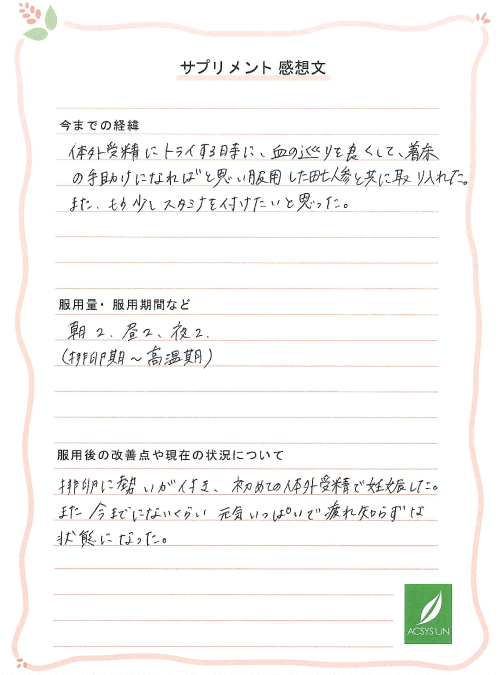 サプリメント 感想文
今までの経緯
体外受精にトライする時に、血の巡りを良くして、着床
の手助けになればと思い服用した田七人参と共に取り入れた。
また、もう少しスタミナを付けたいと思った。
服用量・服用期間など
朝2、昼2、夜2.
(排卵期～高温期)
服用後の改善点や現在の状況について
排卵に勢いが付き、初めての体外受精で妊娠した。
また今までにないくらい元気いっぱいで疲れ知らずな
状態になった。
ACSYS UN